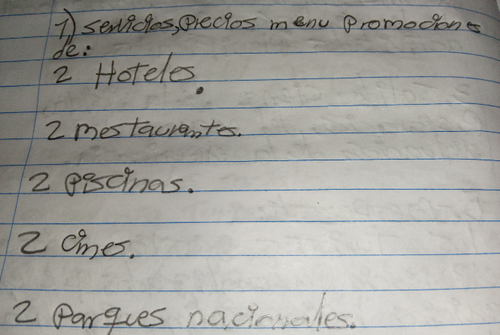 1) servicios, precios menu promociones
de:
2 Hoteles.
2 mestaurantes.
2 piscinas.
2 cines.
2 parques nacionales.